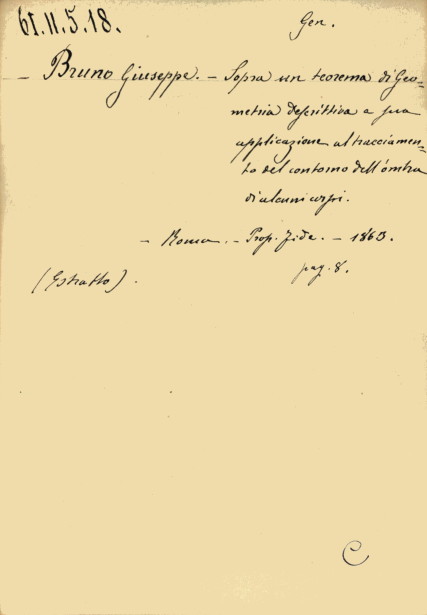 61.II.5.18.
Gen.
- Bruno Giuseppe. - Sopra un teorema di Geo-
metria descrittiva e sua
applicazione al tracciamen-
to del contorno dell'ombra
di alcuni corpi.
- Roma. - Prop. Fide. - 1863.
pag. 8.
(Estratto).
C